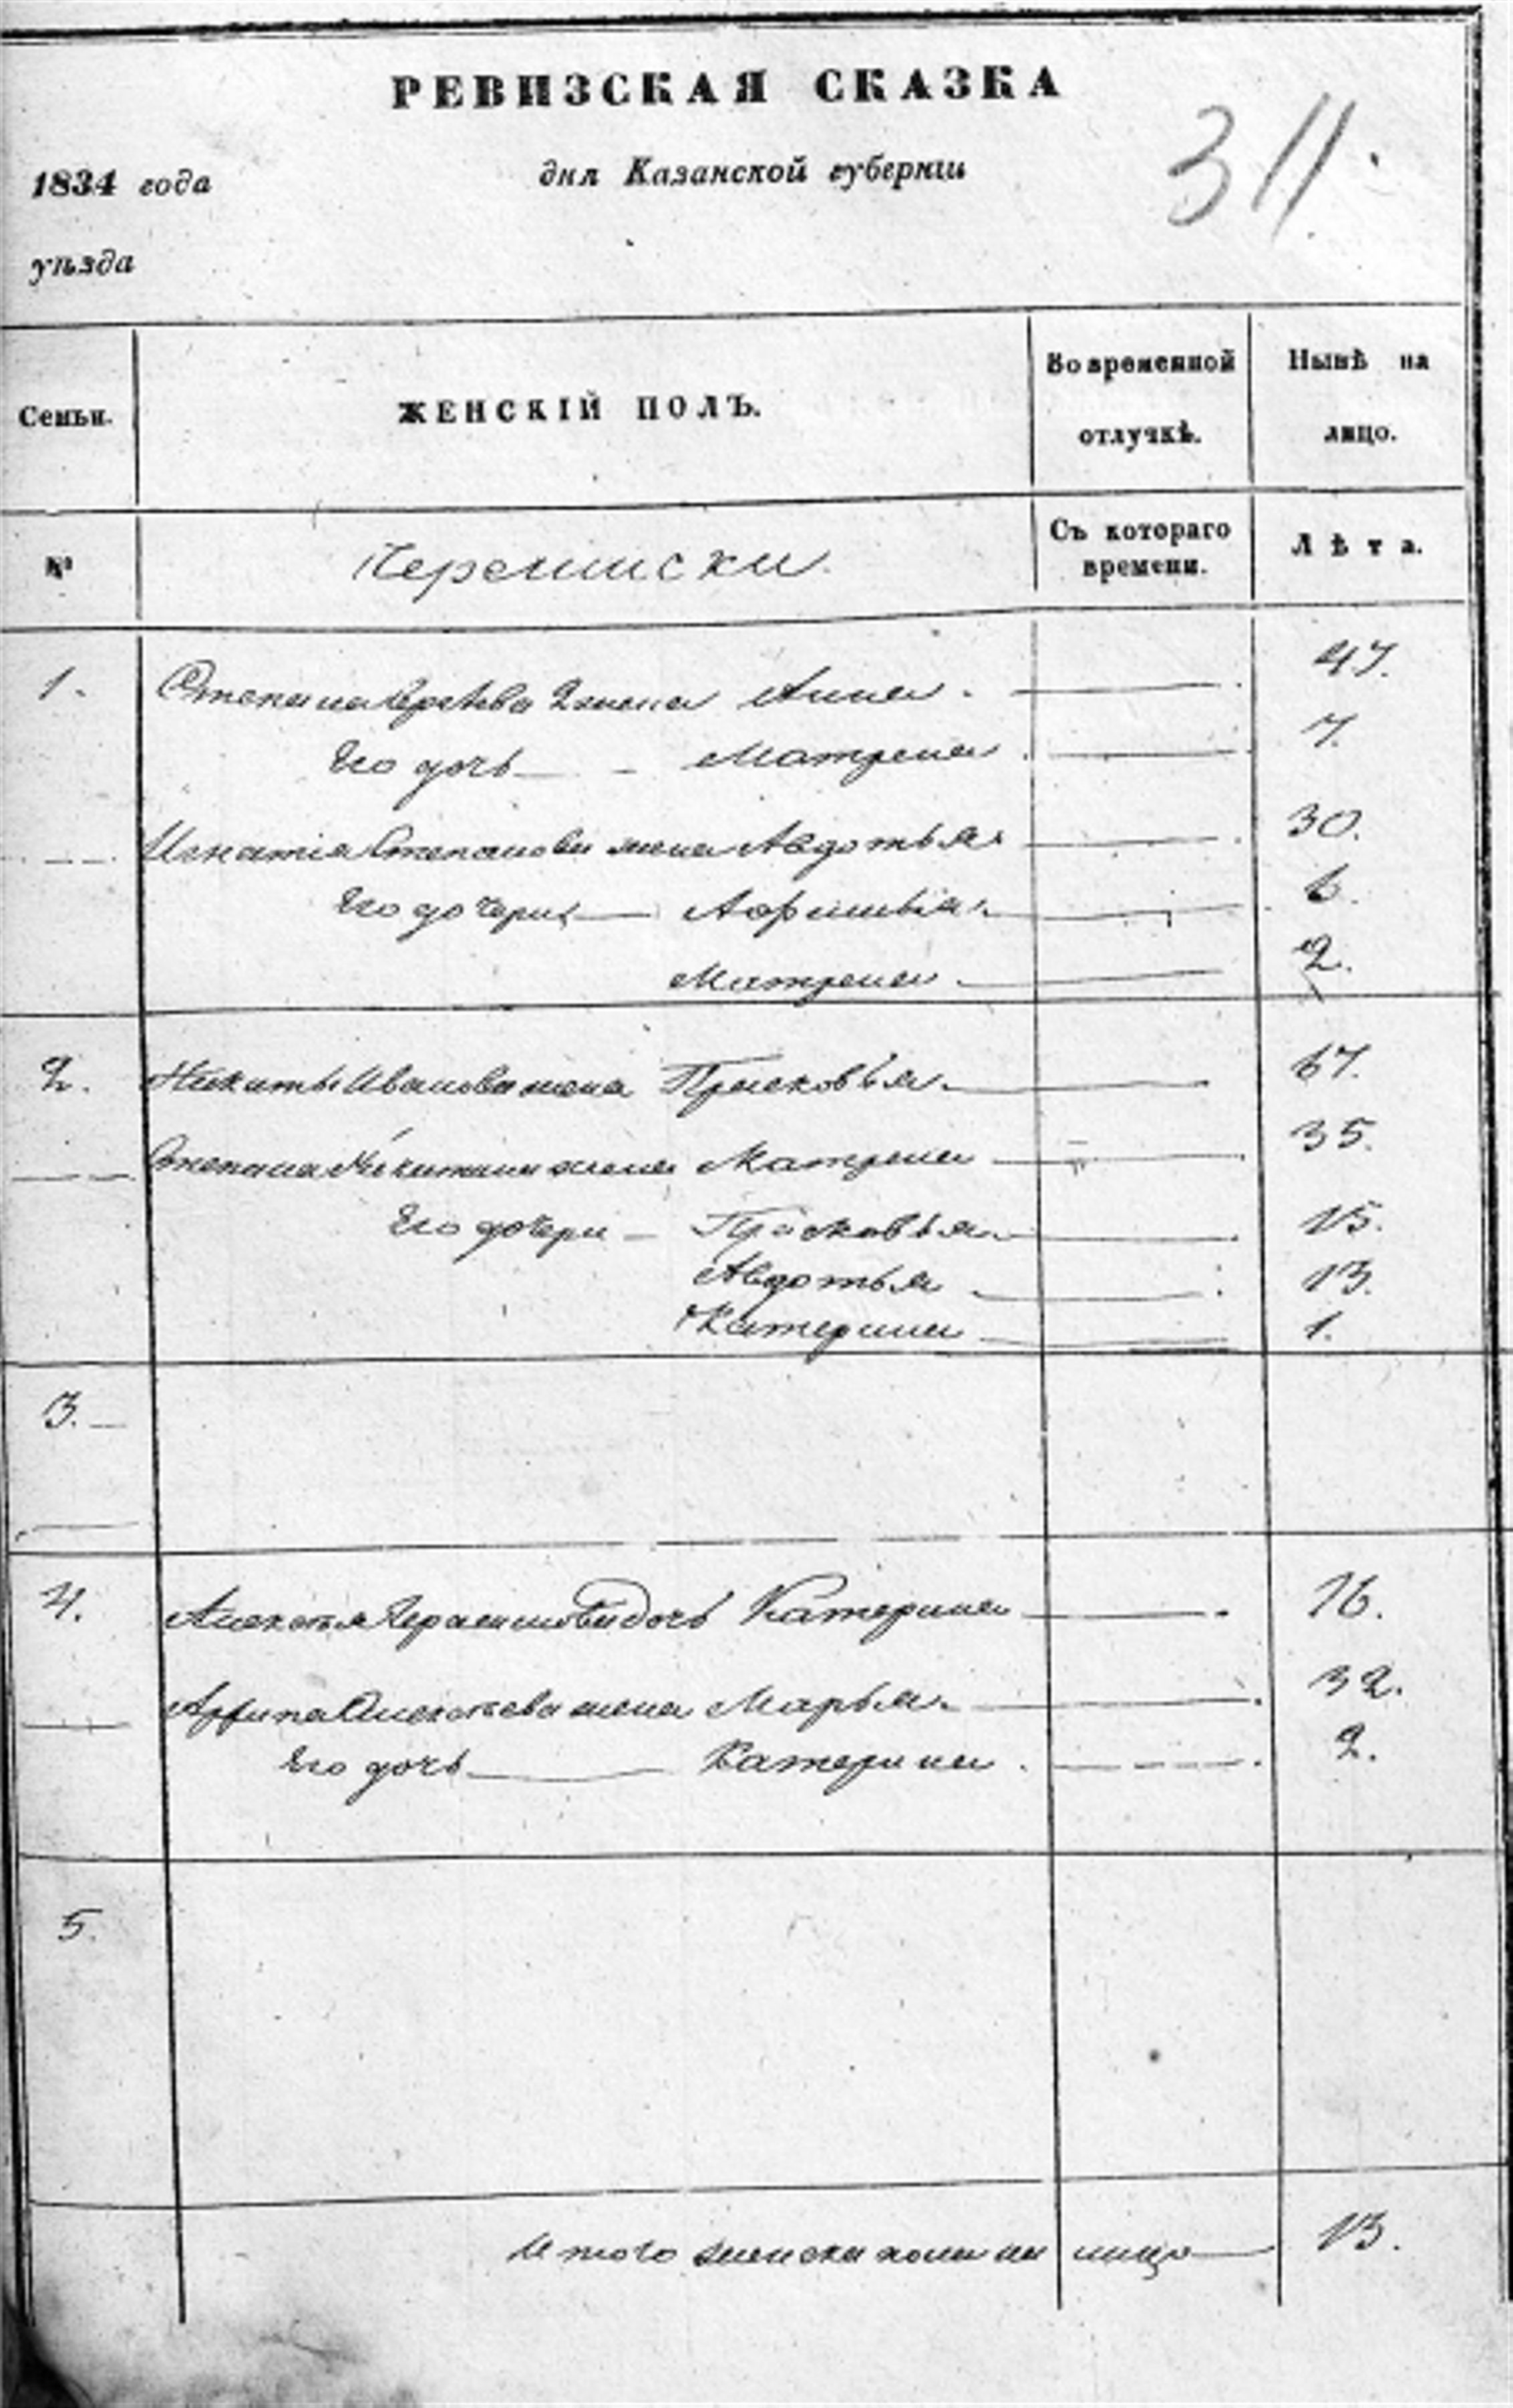 РЕВИЗСКАЯ СКАЗКА
311.
1834 года дня Казанской губернии
уѣзда
Семьи. ЖЕНСКІЙ ПОЛЪ. Во временной отлучкѣ. Ныиѣ на лицо.
№ Черемиски. Съ котораго времени. Лѣта.
1. Степана жена Анна. 47.
Его дочь Матрена 7.
Игнатія Степанова жена Авдотья 30.
Его дочери 6.
Матрена 2.
2. Никиты Иванова жена Прасковья 67.
Степана Никитина жена Матрена 35.
Его дочери Прасковья 15.
Авдотья 13.
Катерина 1.
3.
4. Алексѣя Герасимова дочь Катерина 16.
Архипа Алексѣева жена Марья 32.
Его дочь Катерина 2.
5.
Итого женска пола на лицо 13.